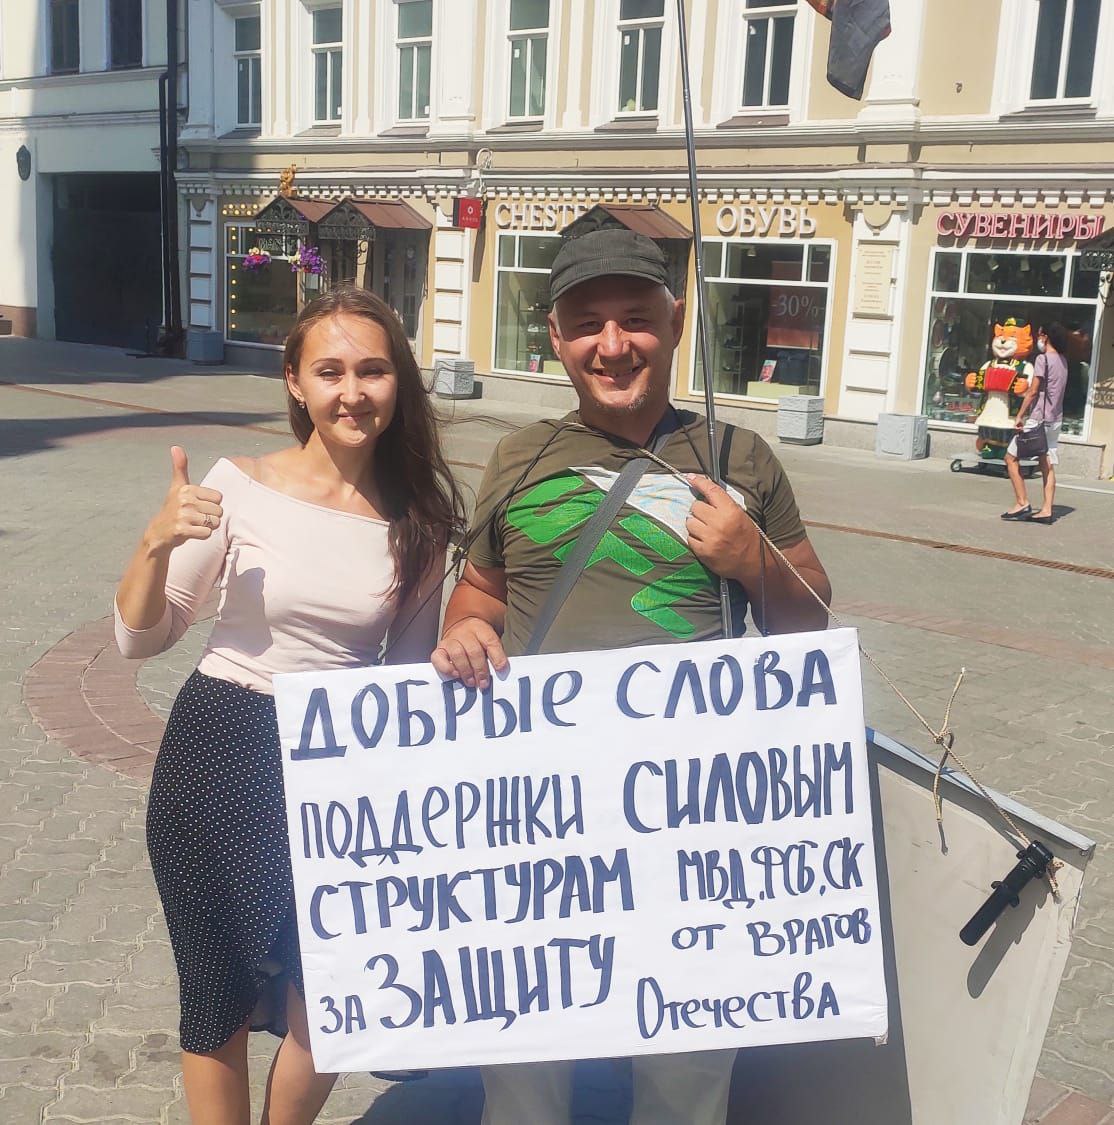 CHESTE
ОБУВЬ
СУВЕНИРЫ
-30%
ДОБРЫЕ СЛОВА
ПОДДЕРЖКИ СИЛОВЫМ
СТРУКТУРАМ МВД, ФСБ, СК
ЗА ЗАЩИТУ ОТ ВРАГОВ
Отечества